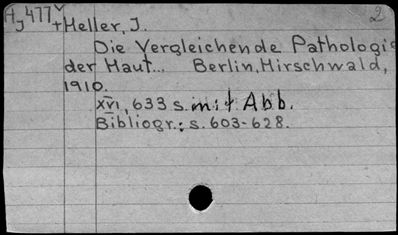 H, 477 2
J + Heller, J.
Die Vergleichende Pathologie
der Haut... Berlin, Hirschwald,
1910.
XVI, 633 s. mit Abb.
Bibliogr.: s. 603-628.